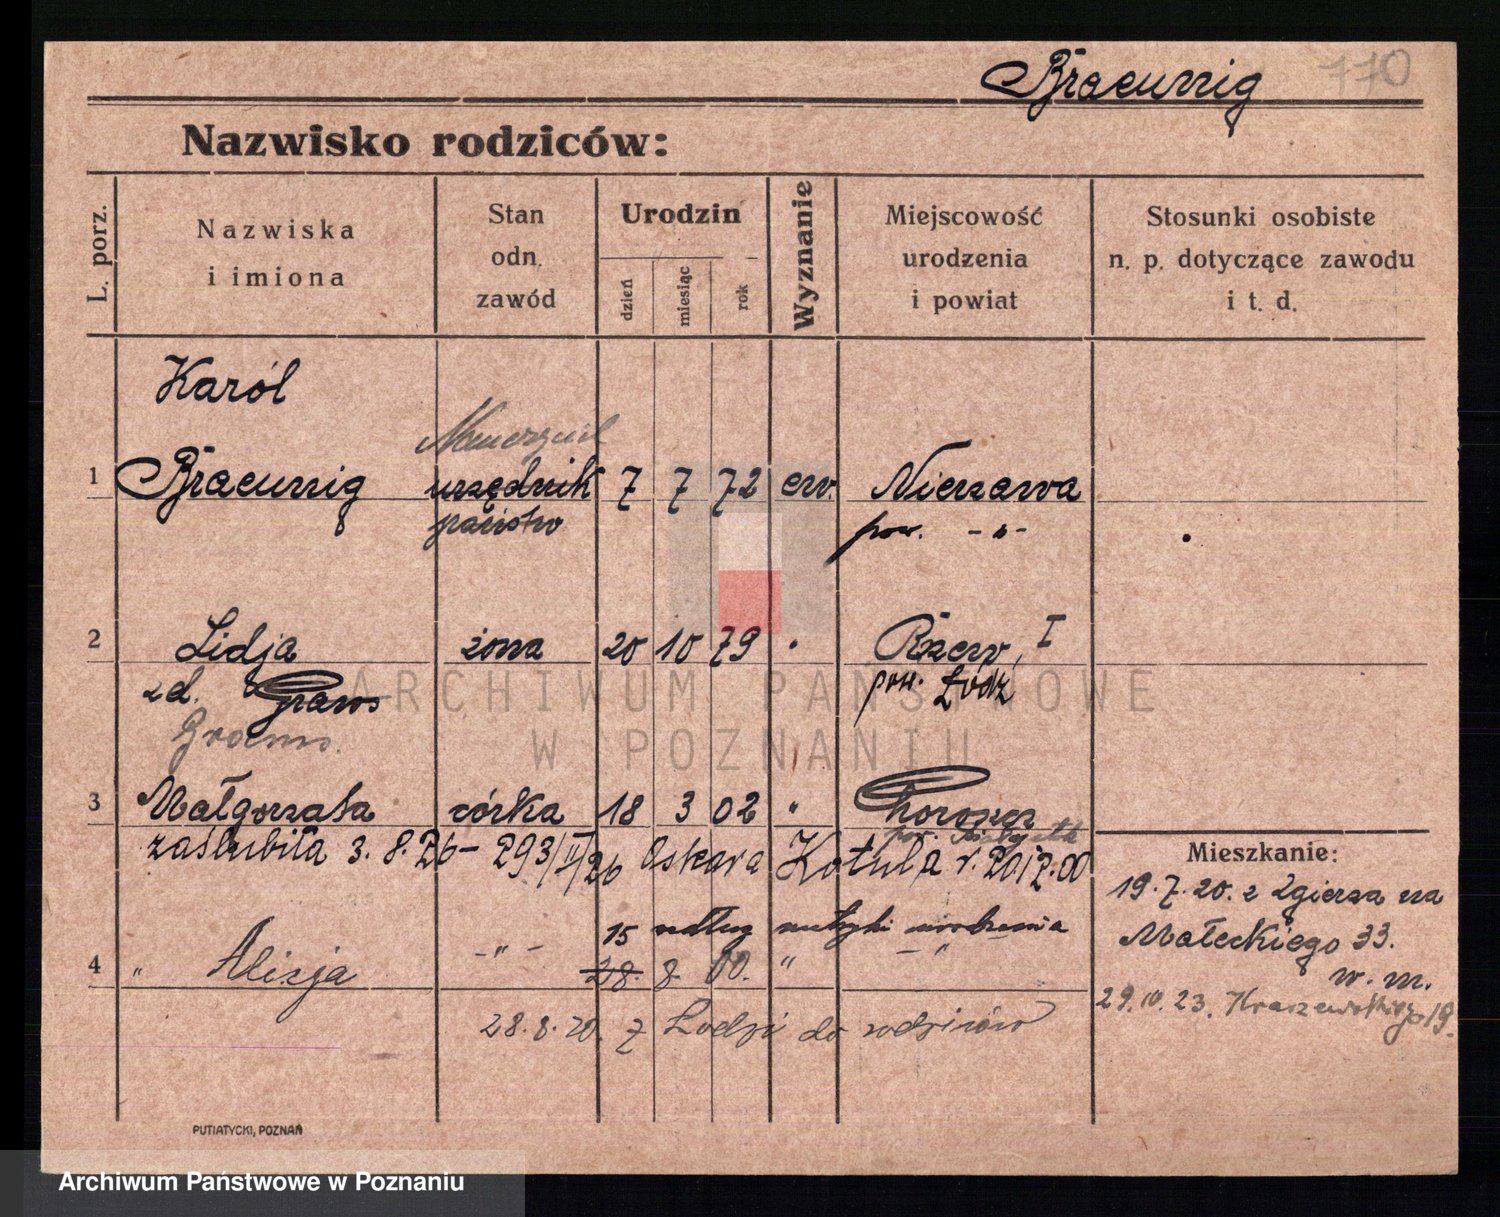 Braeunig 770
Nazwisko rodziców:
L. porz.
Nazwiska
i imiona
Stan
odn.
zawód
Urodzin
dzień
miesiąc
rok
Wyznanie
Miejscowość
urodzenia
i powiat
Stosunki osobiste
n. p. dotyczące zawodu
i t. d.
Karól
1 Braeunig urzędnik 7 7 72 ew. Nieszawa
pow. -"-
2 Lidja żona 20 10 79 " Rzew, I
zd. Graws
pow. Łódź
3 Małgorzata córka 18 3 02 "
zaślubiła 3. 8. 26 - 293/II/26 Oskara Kotula r. 20/7.00
15 według metryki urodzenia
4 " Alicja -"- 28. 8 00. " -"-
28.8.20 z Łodzi do rodziców
Mieszkanie:
19.7.20. z Zgierza na
Małeckiego 33.
w. m.
29.10.23. Kraszewskiego 19.
PUTIATYCKI, POZNAŃ
ARCHIWUM PAŃSTWOWE
W POZNANIU
Archiwum Państwowe w Poznaniu